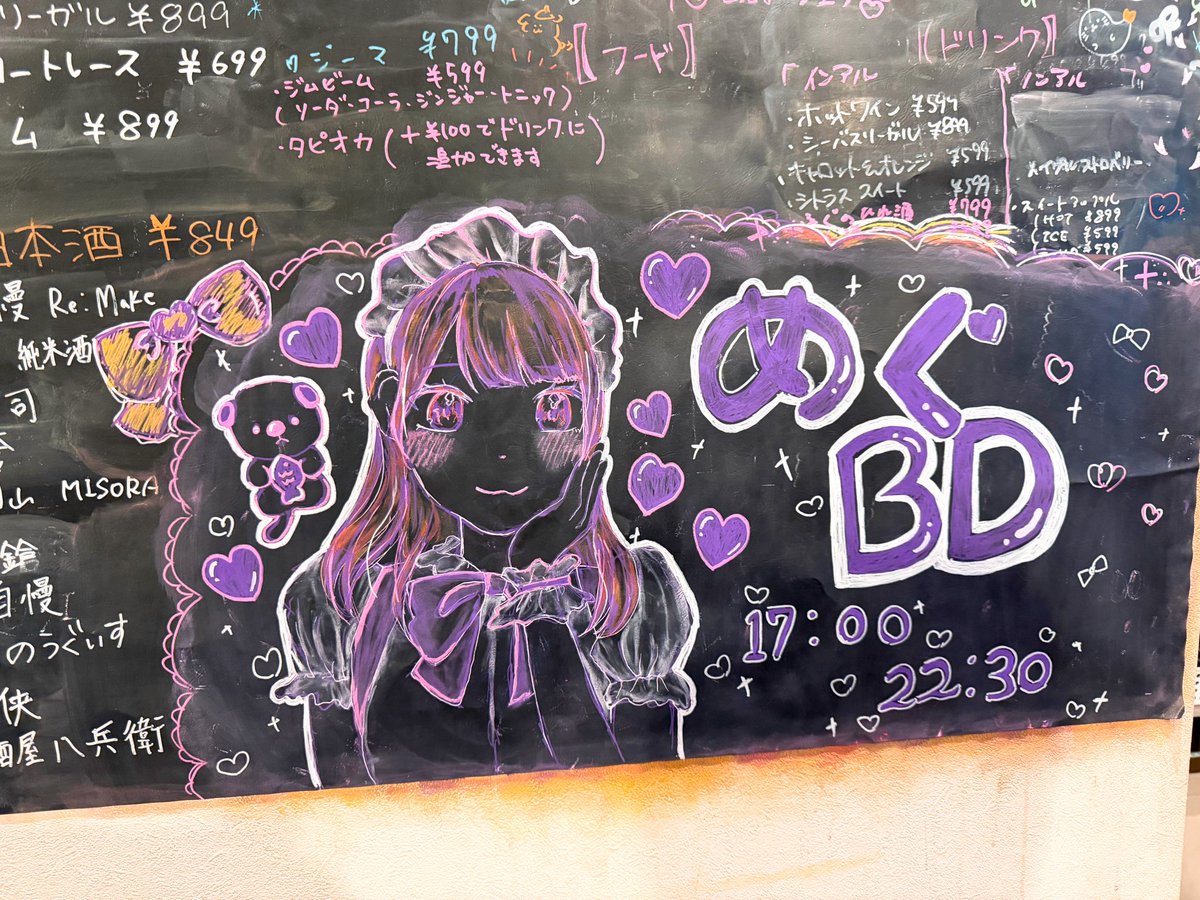 リーガル ¥899
ートレース ¥699
ム ¥899
日本酒 ¥849
慢 Re:Make
純米酒
司
山 MISORA
鈴
自慢
のうぐいす
侠
酒屋八兵衛
ウジーマ ¥799
・ジムビーム ¥599
(ソーダ・コーラ・ジンジャー・トニック)
・タピオカ(+¥100でドリンクに
追加できます)
【フード】
【ドリンク】
「インアル
・ホットワイン ¥599
・シーバスリーガル ¥899
・キャロット&オレンジ ¥599
・シトラススイート ¥599
ひれ酒 ¥799
ノンアル
・スイートアップル
HOT ¥899
ICE ¥599
¥599
めぐ
BD
17:00
22:30